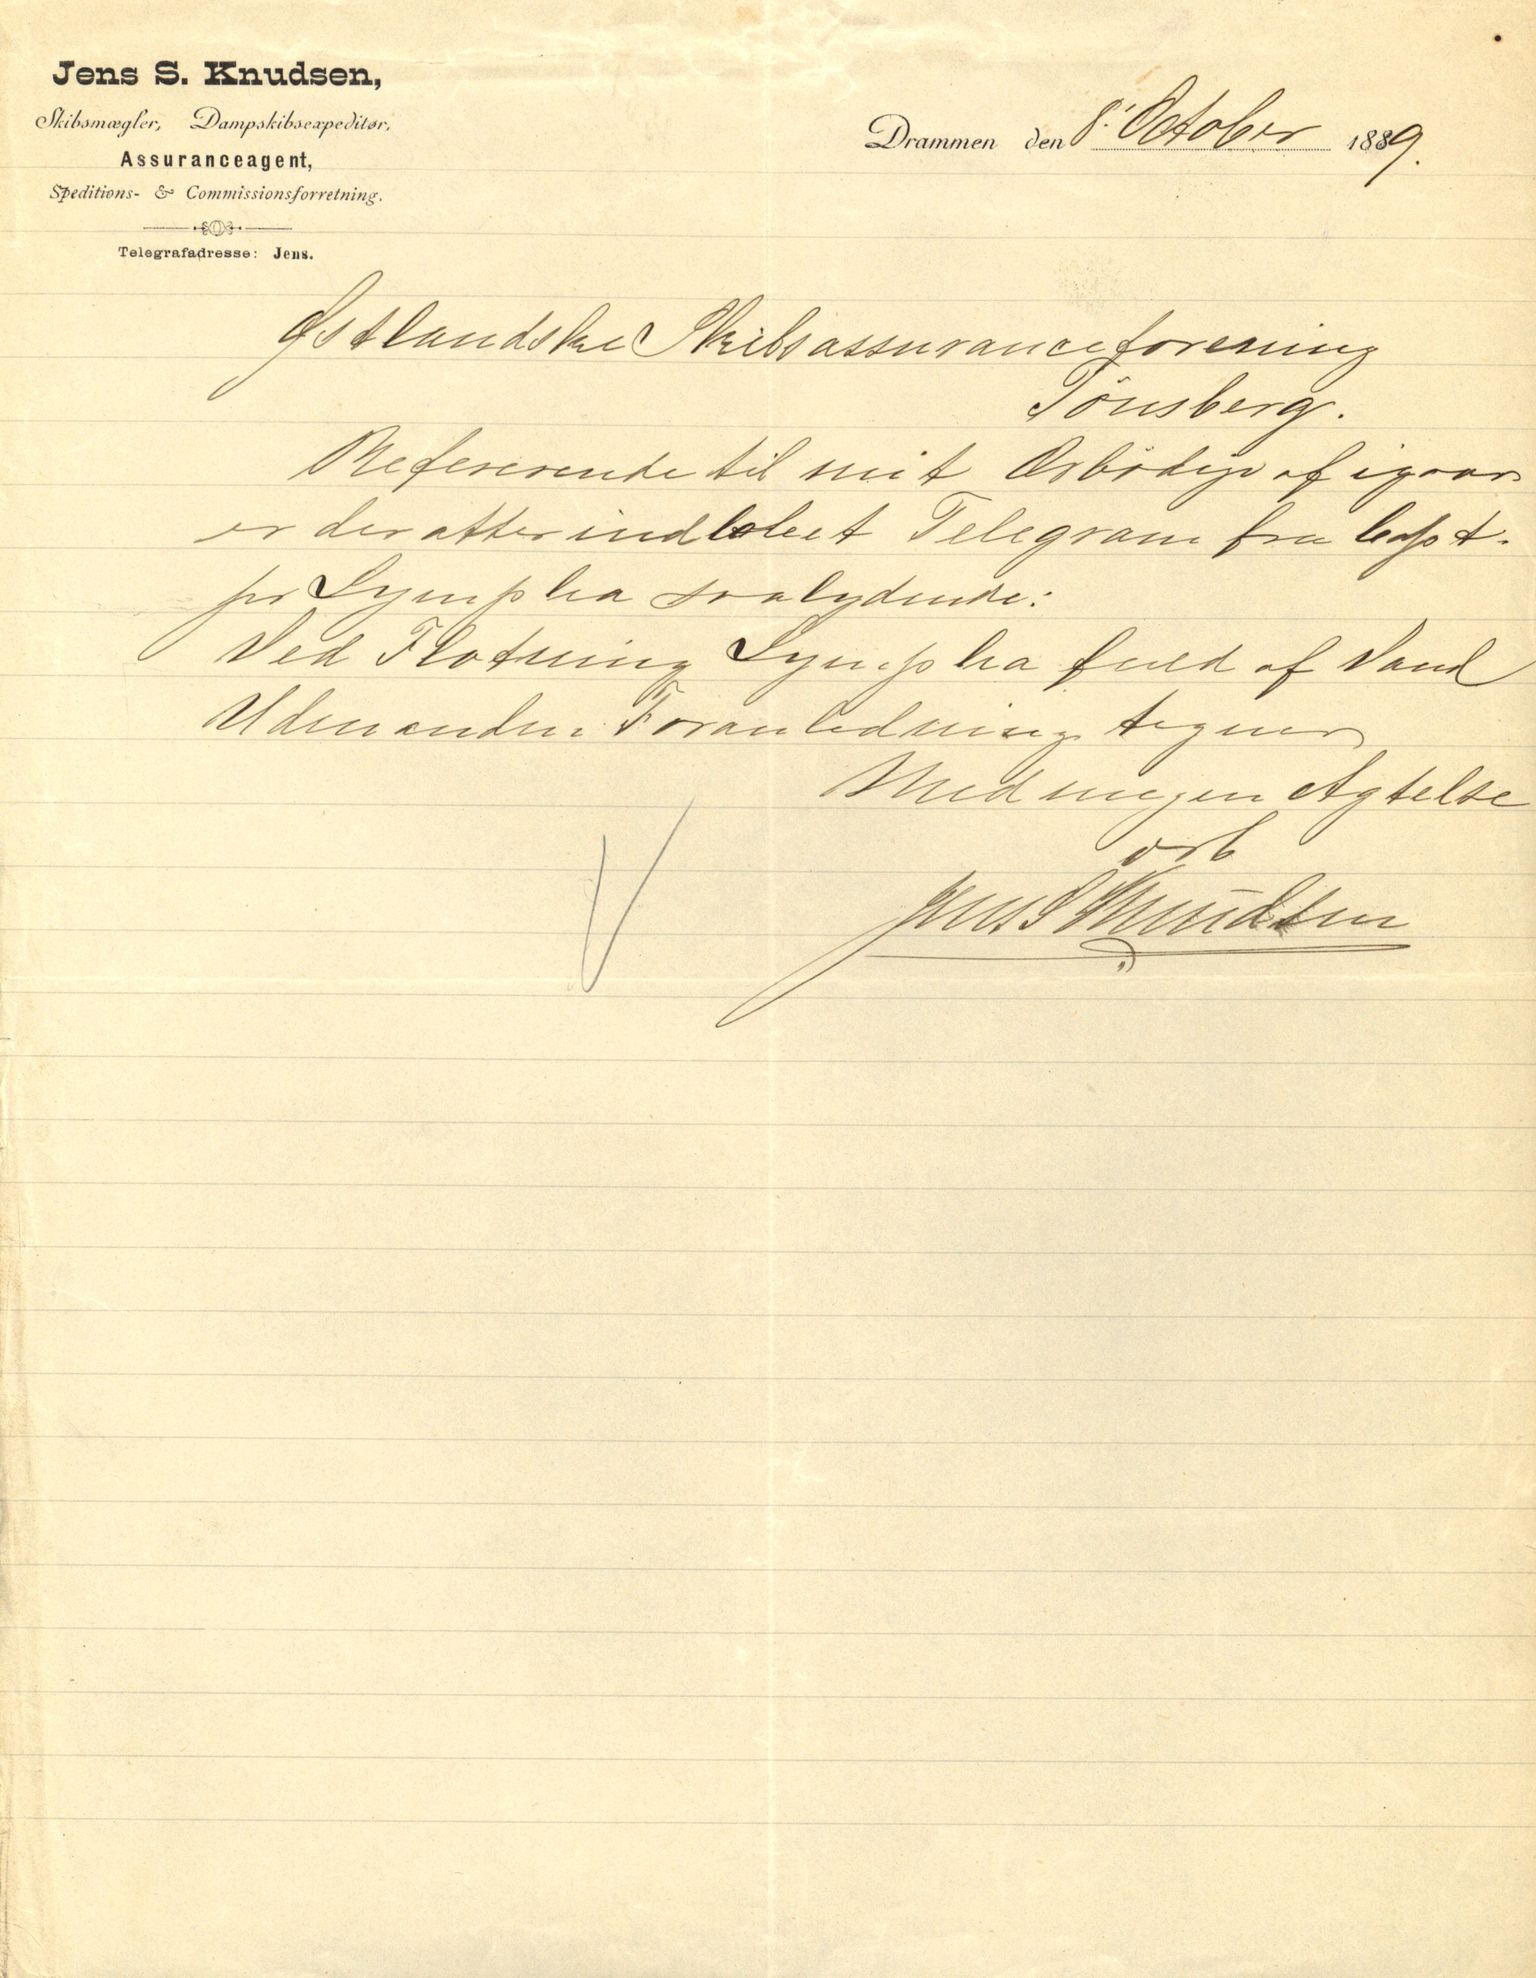 Jens S. Knudsen,
Skibsmægler, Dampskibsexpeditør,
Assuranceagent,
Speditions- & Commissionsforretning.
Telegrafadresse: Jens.
Drammen den 8' October 1889.
Østlandske Skibsassuranceforening
Tönsberg.
Refererende til mit Ærbödige af igaar
er der atter indlobet Telegram fra Capt.
pr Lympha saalydende:
Ved Flotning Lympha fuld af Vand
Uden anden Foranledning tegner
Med megen Agtelse
ærb
Jens S Knudsen